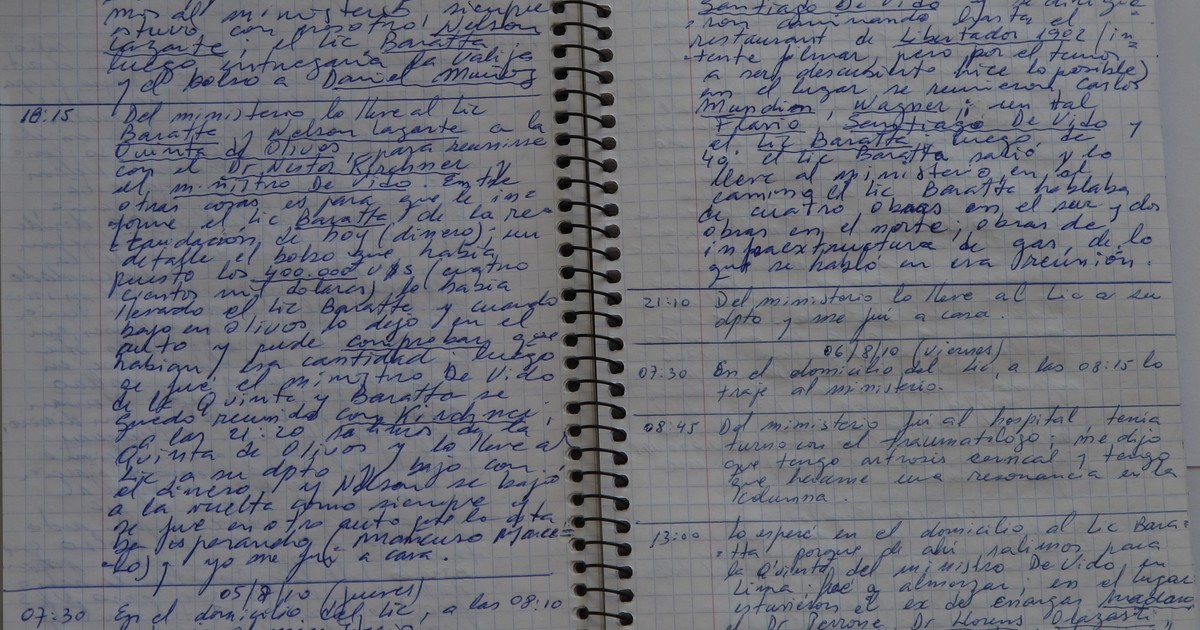 mos al ministerio, siempre
estuvo con nosotros Nelson
Lazarte; el Lic Baratta
luego entregaría la valija
y el bolso a Daniel Muñoz
18:15 Del ministerio lo lleve al Lic
Baratta y Nelson Lazarte a la
Quinta de Olivos, para reunirse
con el Dr Nestor Kirchner y
el ministro De Vido. Entre
otras cosas es para que le in=
forme el Lic Baratta de la re=
caudación de hoy (dinero); un
detalle el bolso que había
puesto los 400.000 U$S (cuatro
cientos mil dolares) lo había
llevado el Lic Baratta y cuando
bajo en Olivos lo dejo en el
auto y pude comprobar que
habían esa cantidad. Luego
se fue el ministro De Vido
de la Quinta y Baratta se
quedo reunido con Kirchner,
a las 21:20 salimos de la
Quinta de Olivos y lo lleve al
Lic a su dpto y bajo con
el dinero y Nelson se bajó
a la vuelta como siempre y
se fue en otro auto que lo esta
ba esperando (Mancuso Marce=
lo) y yo me fui a casa.
05/8/10 (jueves)
07:30 En el domicilio del Lic, a las 08:10
Santiago De Vido y se dirigie
ron caminando hasta el
restaurant de Libertador 1902 (in=
tente filmar, pero por el temor
a ser descubierto hice lo posible)
en el lugar se reunieron Carlos
Mundin, Wagner; un tal
Flavio, Santiago De Vido y
el Lic Baratta, luego de
40' el Lic Baratta salió y lo
lleve al ministerio, en el
camino el Lic Baratta hablaba
de cuatro obras en el sur y dos
obras en el norte; obras de
infraextructura de gas, de lo
que se habló en esa reunión.
21:10 Del ministerio lo lleve al Lic a su
dpto y me fui a casa.
06/8/10 (viernes)
07:30 En el domicilio del Lic, a las 08:15 lo
traje al ministerio.
08:45 Del ministerio fui al hospital, tenia
turno con el traumatologo; me dijo
que tengo artrosis cervical y tengo
que hacerme una resonancia en la
columna.
13:00 Lo esperé en el domicilio al Lic Bara=
tta porque de ahi salimos para
la Quinta del ministro De Vido en
Lima, fue a almorzar; en el lugar
estuvieron el ex de enargas Madaro
el Dr Perrone, Dr Llorens, Olazasti,